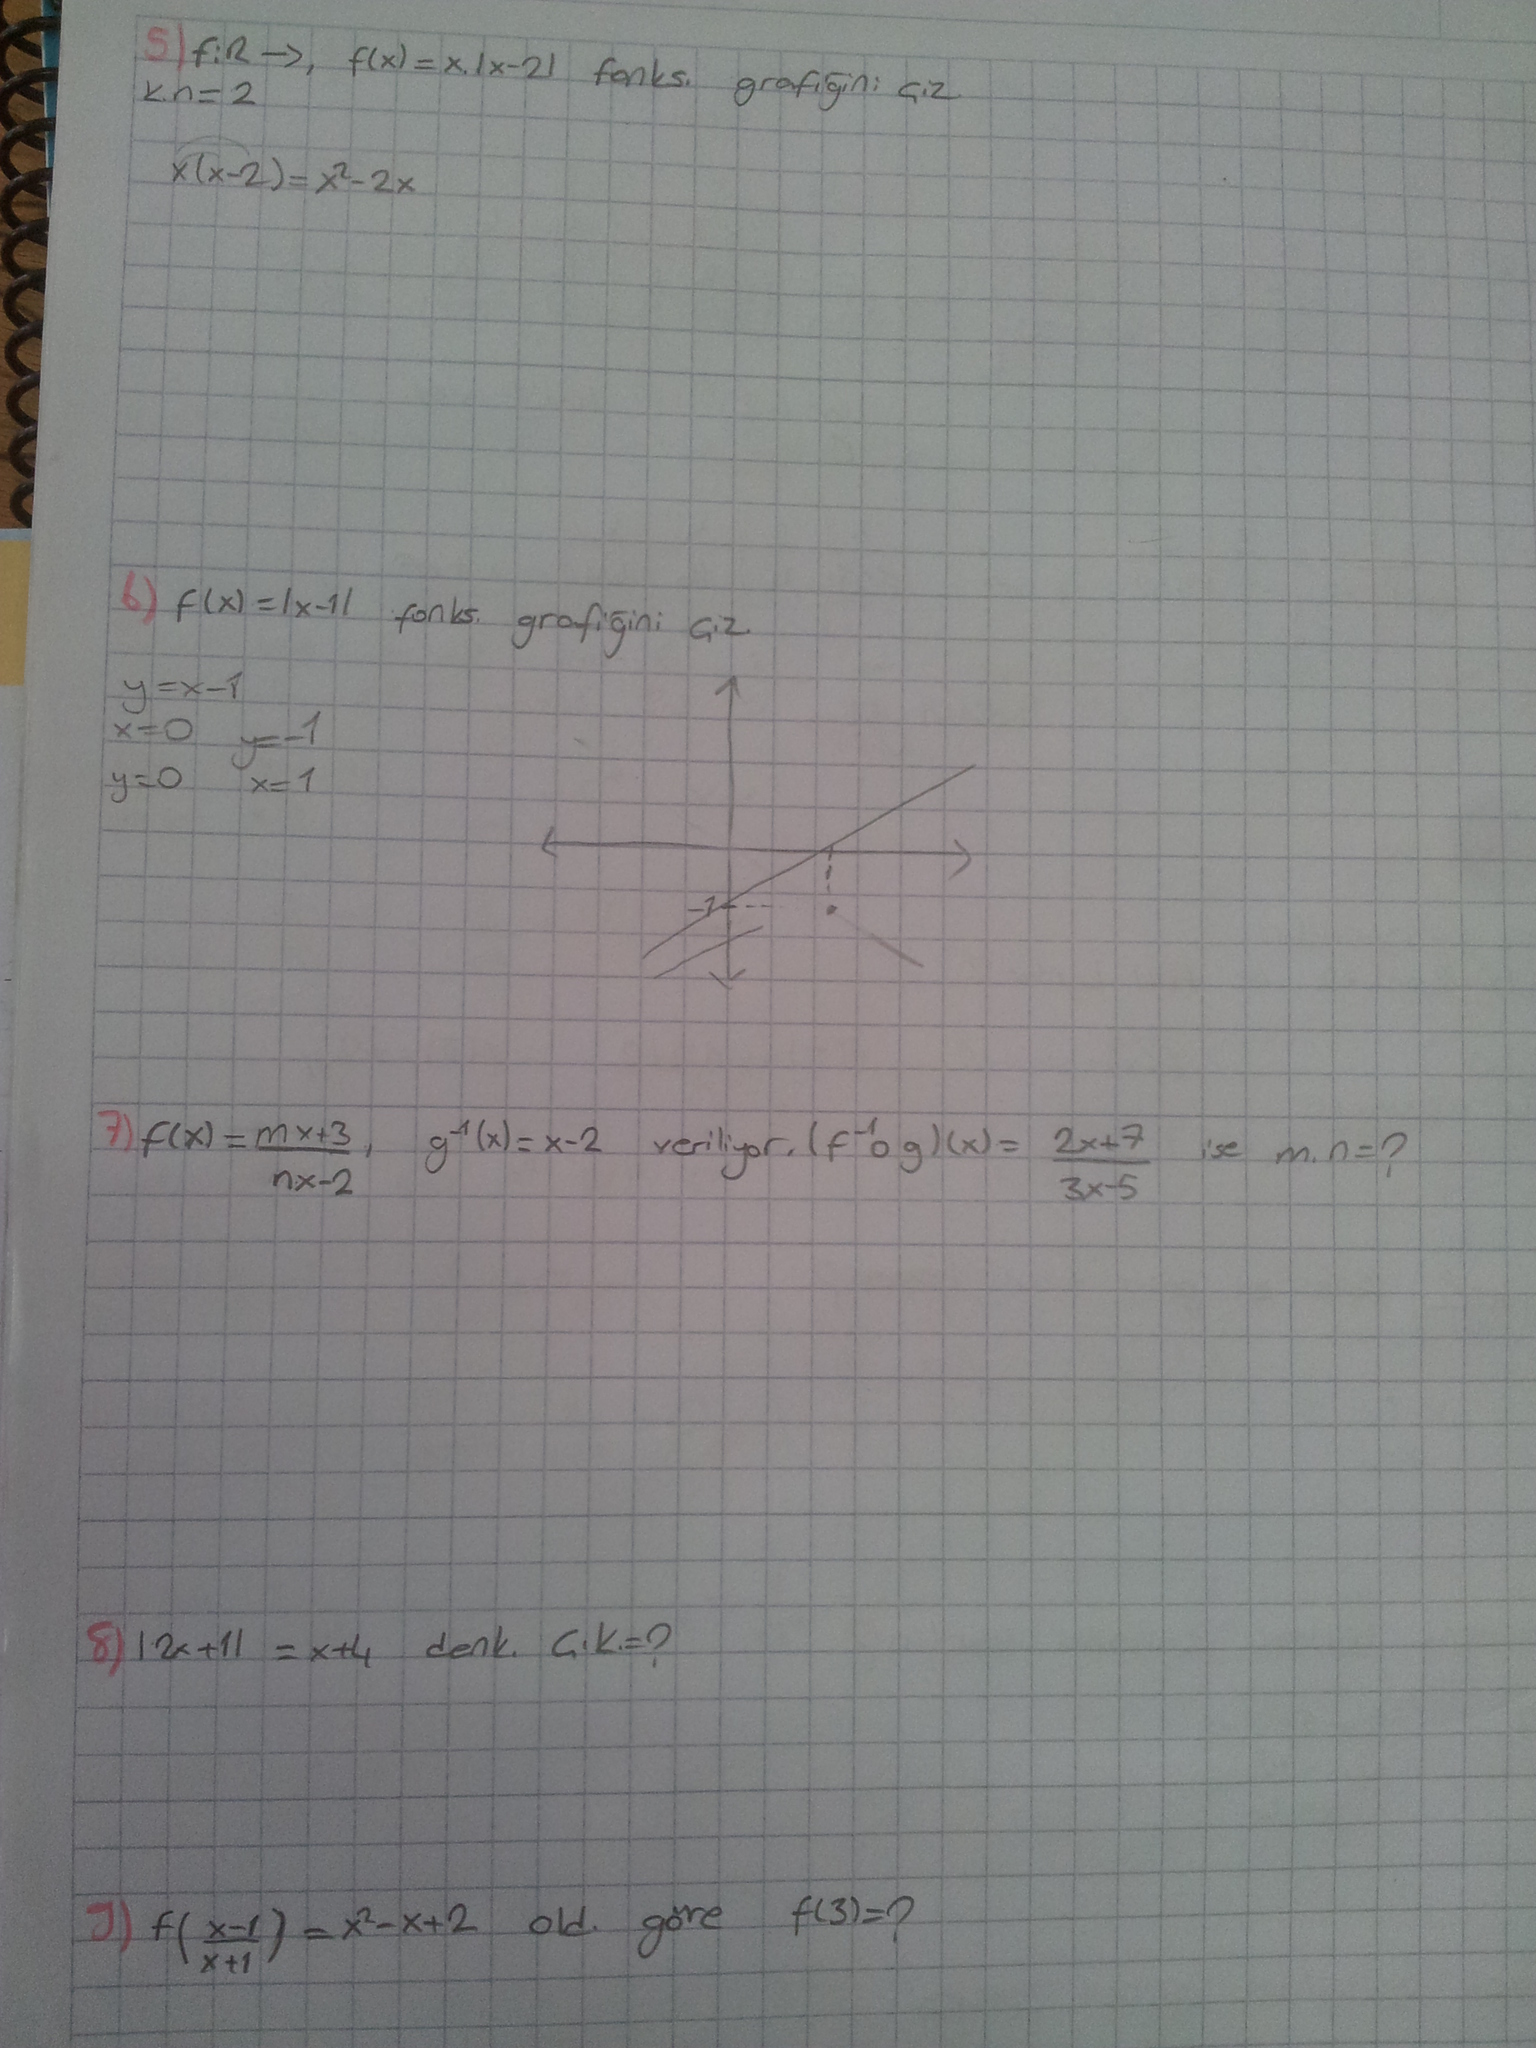 5) f:R →, f(x) = x.|x-2| fonks. grafiğini çiz
k.n = 2
x(x-2) = x²-2x
6) f(x) = |x-1| fonks. grafiğini çiz.
y = x-1
x=0 y=-1
y=0 x=1
-1
7) f(x) = \frac{mx+3}{nx-2}, g⁻¹(x) = x-2 veriliyor. (f⁻¹o g)(x) = \frac{2x+7}{3x-5} ise m.n=?
8) |2x+1| = x+4 denk. Ç.K.=?
9) f(\frac{x-1}{x+1}) = x²-x+2 old. göre f(3)=?